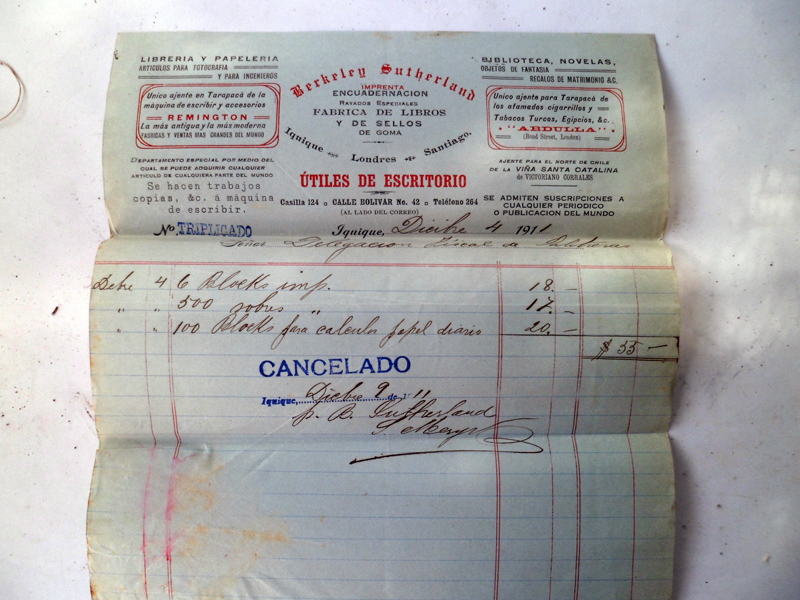 LIBRERIA Y PAPELERIA
ARTICULOS PARA FOTOGRAFIA
Y PARA INGENIEROS
Unico ajente en Tarapacá de la
máquina de escribir y accesorios
REMINGTON
La más antigua y la más moderna
FABRICAS Y VENTAS MAS GRANDES DEL MUNDO
DEPARTAMENTO ESPECIAL POR MEDIO DEL
CUAL SE PUEDE ADQUIRIR CUALQUIER
ARTICULO DE CUALQUIERA PARTE DEL MUNDO
Se hacen trabajos
copias, &c. á máquina
de escribir.
Berkeley Sutherland
IMPRENTA
ENCUADERNACION
RAYADOS ESPECIALES
FABRICA DE LIBROS
Y DE SELLOS
DE GOMA
Iquique Londres Santiago.
ÚTILES DE ESCRITORIO
Casilla 124 o CALLE BOLIVAR No. 42 o Teléfono 264
(AL LADO DEL CORREO)
BIBLIOTECA, NOVELAS,
OBJETOS DE FANTASIA
REGALOS DE MATRIMONIO &C.
Unico ajente para Tarapacá de
los afamados cigarrillos y
Tabacos Turcos, Egipcios, &c.
"ABDULLA"
(Bond Street, London)
AJENTE PARA EL NORTE DE CHILE
DE LA VIÑA SANTA CATALINA
DE VICTORIANO CORRALES
SE ADMITEN SUSCRIPCIONES A
CUALQUIER PERIODICO
O PUBLICACION DEL MUNDO
No. TRIPLICADO
Iquique, Dicibe 4 1911
Señor Delegacion Fiscal de Salitreras
Dcbre 4 6 Blocks imp. 18. —
" " 500 sobres " 17. —
" " 100 Blocks para calculos papel diario 20. —
$ 55 —
CANCELADO
Iquique, Dicbre 9 de 11
p. B. Sutherland